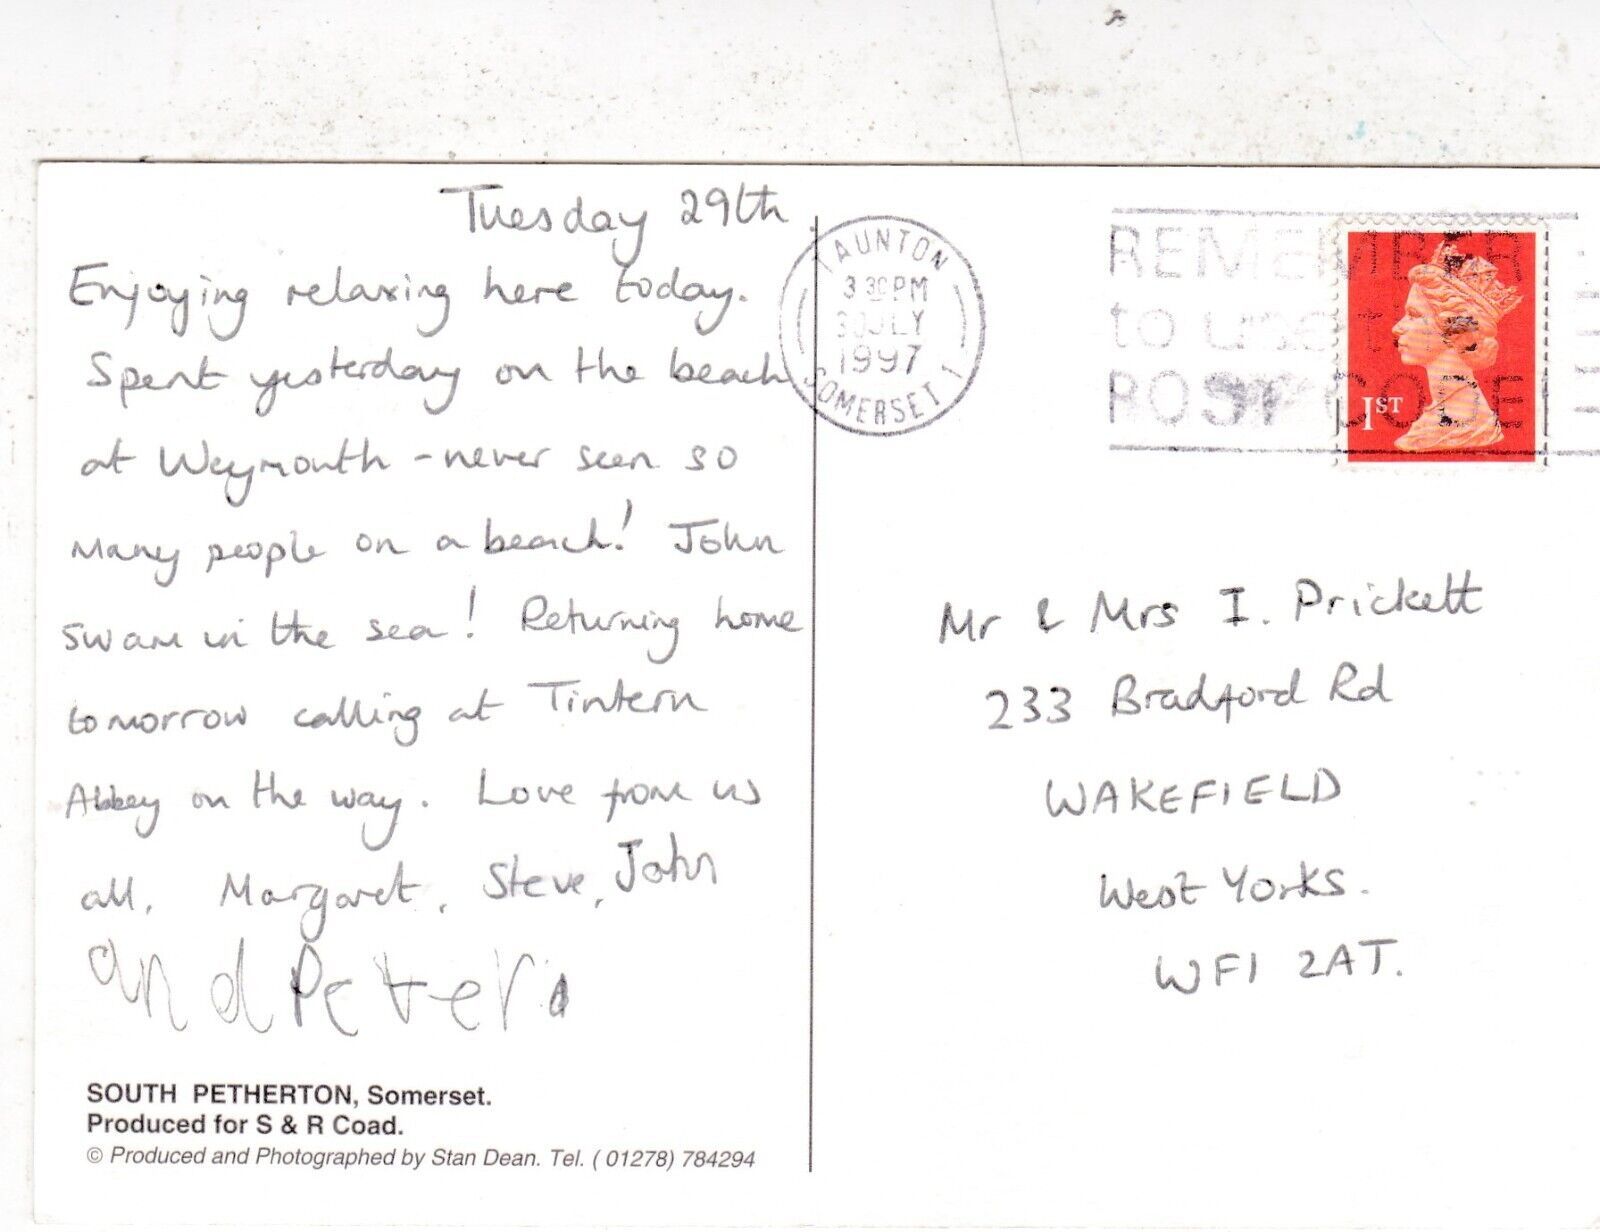 Tuesday 29th.
Enjoying relaxing here today.
Spent yesterday on the beach
at Weymouth - never seen so
many people on a beach! John
swam in the sea! Returning home
tomorrow calling at Tintern
Abbey on the way. Love from us
all, Margaret, Steve, John
and Peter
SOUTH PETHERTON, Somerset.
Produced for S & R Coad.
© Produced and Photographed by Stan Dean. Tel. ( 01278) 784294
TAUNTON
3 30 PM
30 JLY
1997
SOMERSET 1
REMEMBER
to use the
POSTCODE
1ST
Mr & Mrs I. Prickett
233 Bradford Rd
WAKEFIELD
West Yorks.
WF1 2AT.